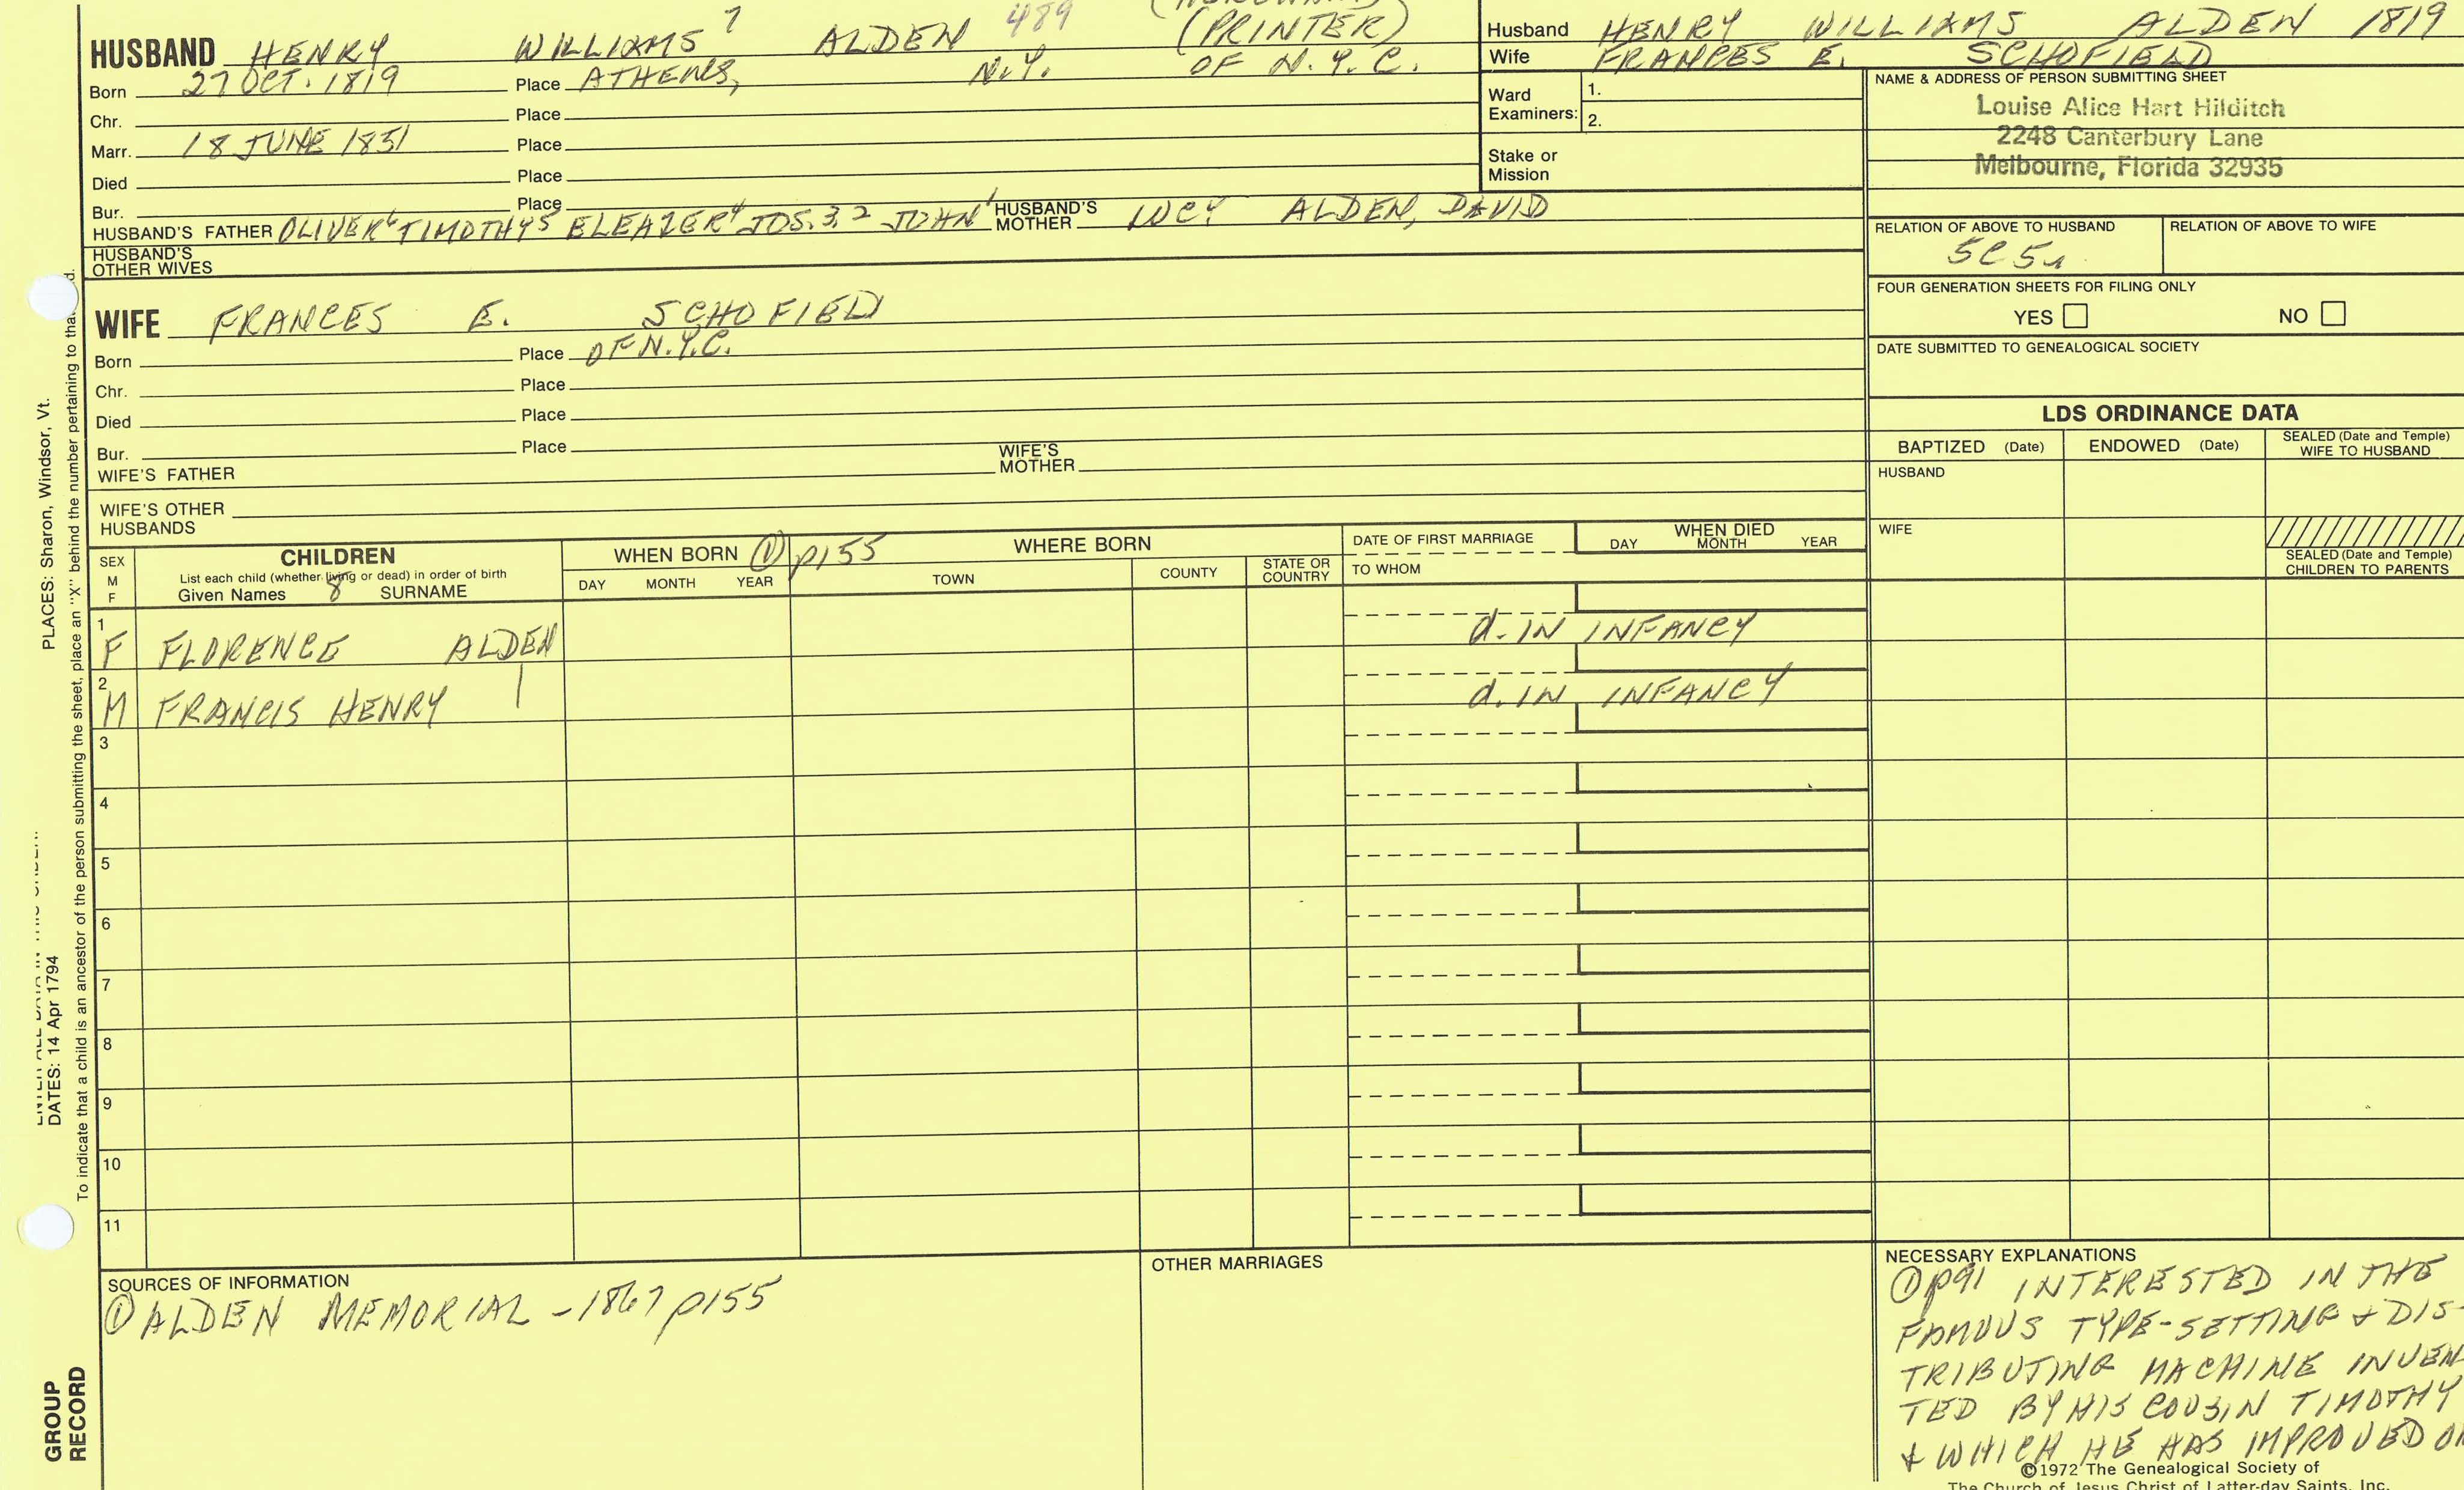 HUSBAND HENRY WILLIAMS 7 ALDEN 489 (PRINTER)
Born 27 OCT. 1819 Place ATHENS, N.Y. OF N.Y.C.
Chr. Place
Marr. 18 JUNE 1851 Place
Died Place
Bur. Place
HUSBAND'S FATHER OLIVER 6 TIMOTHY 5 ELEAZER 4 JOS. 3, 2 JOHN 1 HUSBAND'S MOTHER LUCY ALDEN, DAVID
HUSBAND'S OTHER WIVES
Husband HENRY WILLIAMS ALDEN 1819
Wife FRANCES E. SCHOFIELD
Ward Examiners: 1.
2.
Stake or Mission
NAME & ADDRESS OF PERSON SUBMITTING SHEET
Louise Alice Hart Hilditch
2248 Canterbury Lane
Melbourne, Florida 32935
RELATION OF ABOVE TO HUSBAND RELATION OF ABOVE TO WIFE
FOUR GENERATION SHEETS FOR FILING ONLY
YES NO
DATE SUBMITTED TO GENEALOGICAL SOCIETY
WIFE FRANCES E. SCHOFIELD
Born Place OF N.Y.C.
Chr. Place
Died Place
Bur. Place
WIFE'S FATHER WIFE'S MOTHER
WIFE'S OTHER HUSBANDS
LDS ORDINANCE DATA
BAPTIZED (Date) ENDOWED (Date) SEALED (Date and Temple) WIFE TO HUSBAND
HUSBAND
WIFE
SEALED (Date and Temple) CHILDREN TO PARENTS
SEX M F
CHILDREN
List each child (whether living or dead) in order of birth
Given Names 8 SURNAME
WHEN BORN ① p155
DAY MONTH YEAR
WHERE BORN
TOWN COUNTY STATE OR COUNTRY
DATE OF FIRST MARRIAGE
TO WHOM
WHEN DIED
DAY MONTH YEAR
1 F FLORENCE ALDEN d. IN INFANCY
2 M FRANCIS HENRY | d. IN INFANCY
3
4
5
6
7
8
9
10
11
SOURCES OF INFORMATION
① ALDEN MEMORIAL - 1867 p155
OTHER MARRIAGES
NECESSARY EXPLANATIONS
① p91 INTERESTED IN THE
FAMOUS TYPE-SETTING & DIS-
TRIBUTING MACHINE INVEN
TED BY HIS COUSIN TIMOTHY
& WHICH HE HAS IMPROVED
©1972 The Genealogical Society of
The Church of Jesus Christ of Latter-day Saints, Inc.
PLACES: Sharon, Windsor, Vt.
DATES: 14 Apr 1794
To indicate that a child is an ancestor of the person submitting the sheet, place an "X" behind the number pertaining to
GROUP
RECORD